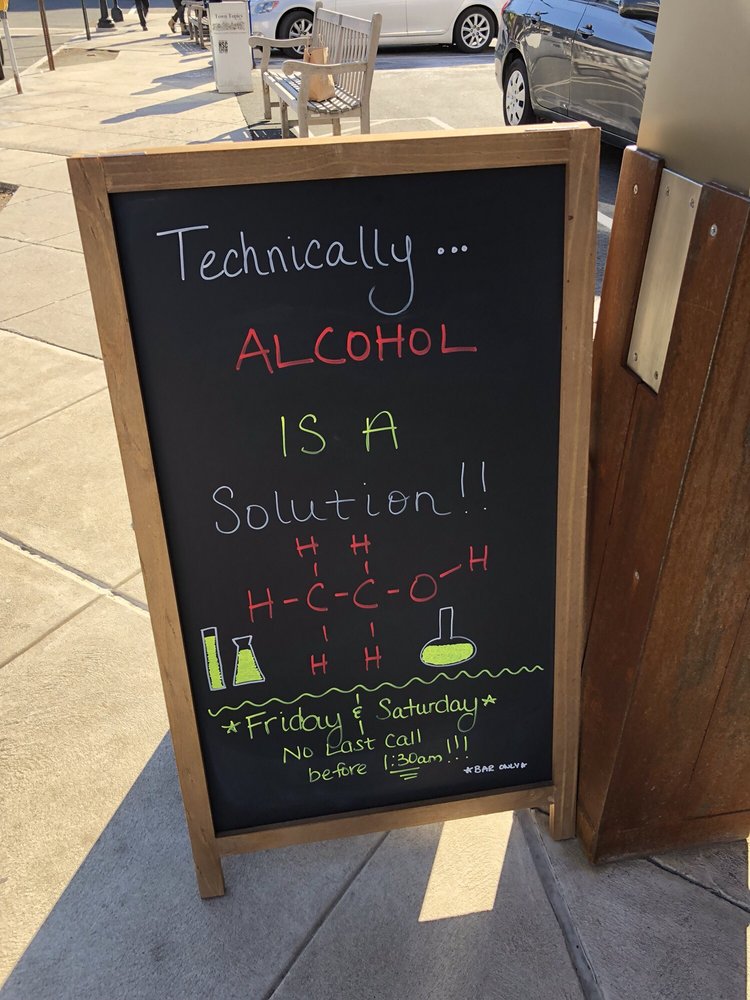 Town Topics
Technically ...
ALCOHOL
IS A
Solution!!
H H
H-C-C-O-H
H H
*Friday & Saturday*
No Last Call
before 1:30am!!!
*BAR ONLY*